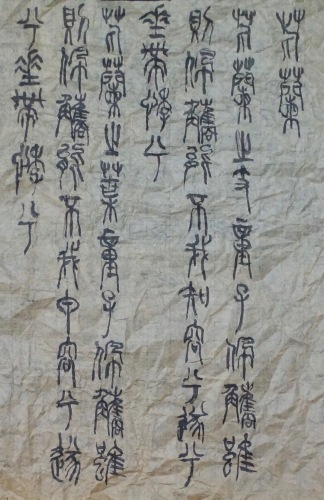 芄蘭
芄蘭之支童子佩觿雖
則佩觿能不我知容兮遂兮
垂帶悸兮
芄蘭之葉童子佩觿雖
則佩觿能不我甲容兮遂
兮垂帶悸兮